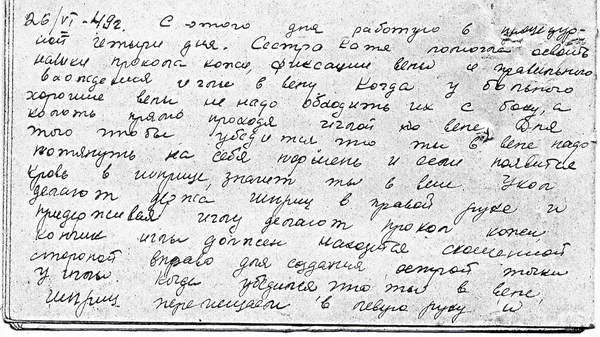 26/VI-49г. С этого дня работую в процедур-
ной четыри дня. Сестра Катя помогла освоить
навики прокола кожи, фиксации вены и правильного
вхождения иглы в вену. Когда у больного
хорошие вены не надо обходить их с боку, а
колоть прямо проходя иглой по вене. Для
того чтобы убедится что ты в вене надо
потянуть на себя поршень и если появится
кровь в шприце, значит ты в вене. Укол
делают держа шприц в правой руке и
придерживая иглу делают прокол кожи,
кончик иглы должен находится скошенной
стороной вправо для создания острой точки
у иглы. Когда убедился что ты в вене,
шприц перемещаем в левую руку и